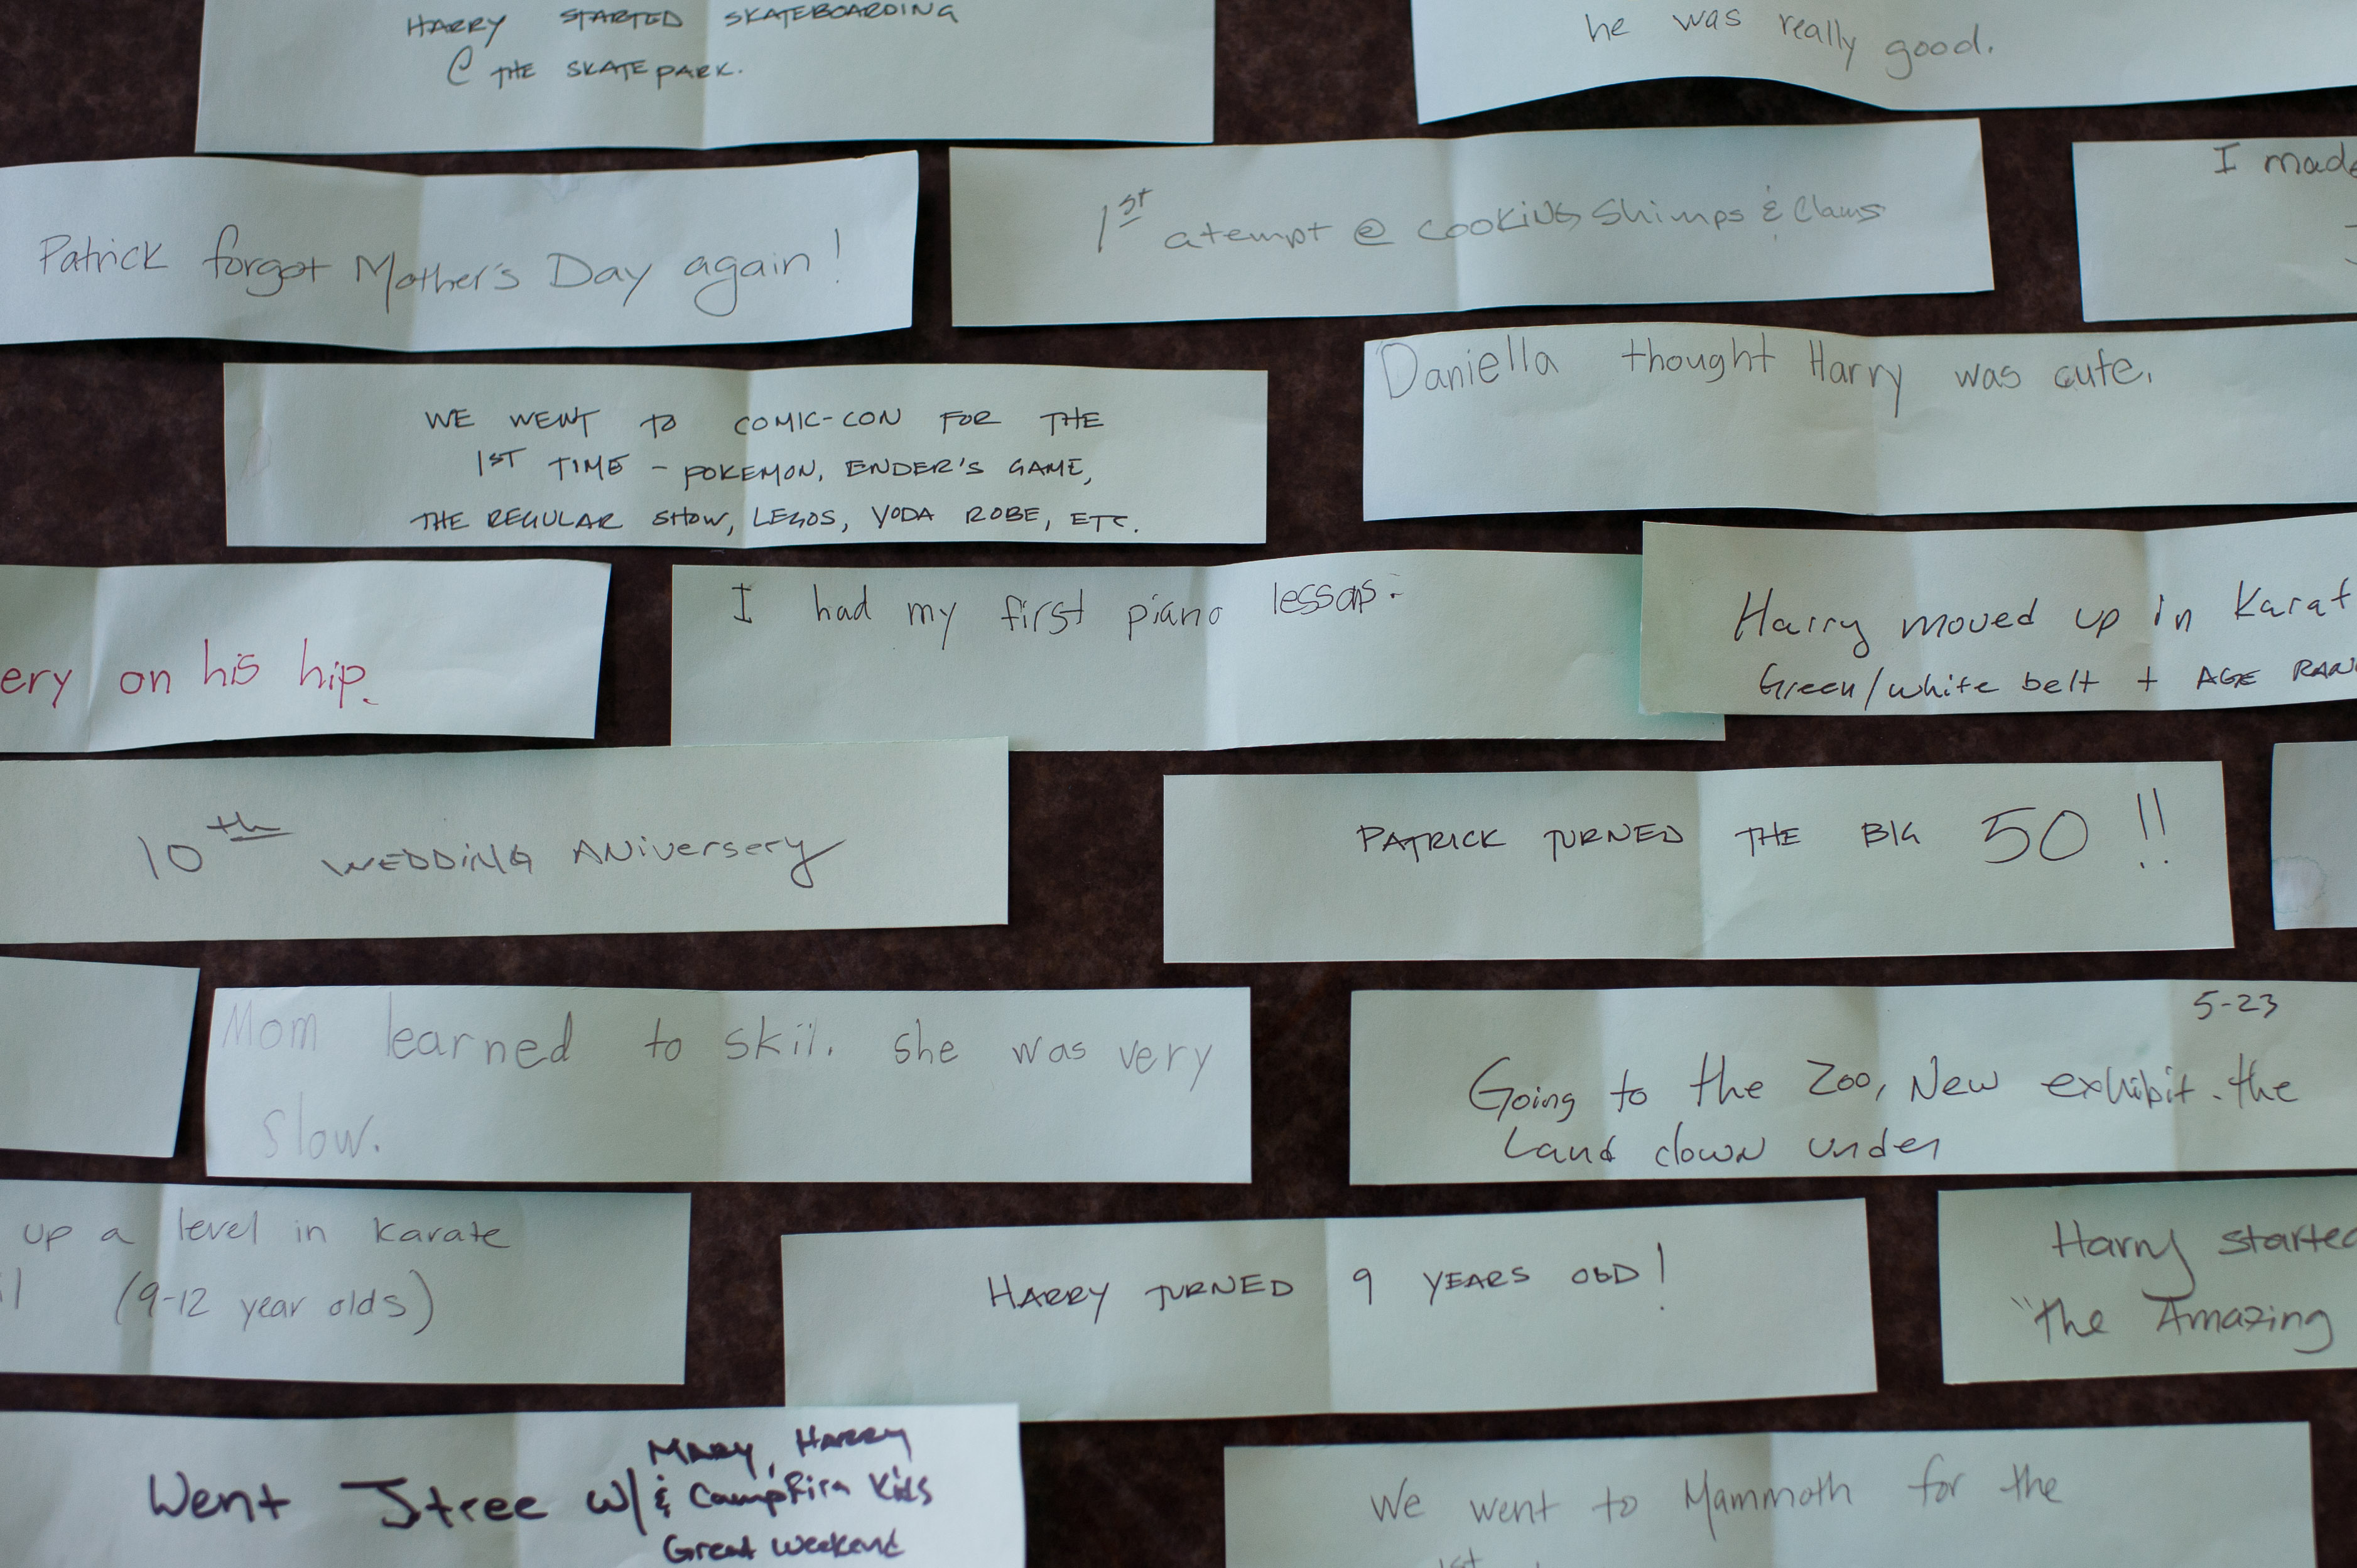 HARRY STARTED SKATEBOARDING
@ THE SKATEPARK.
he was really good.
Patrick forgot Mother's Day again!
1st atempt @ cooking Shimps & Clams
I made
WE WENT TO COMIC-CON FOR THE
1ST TIME - POKEMON, ENDER'S GAME,
THE REGULAR SHOW, LEGOS, YODA ROBE, ETC.
Daniella thought Harry was cute.
ery on his hip.
I had my first piano lesson.
Harry moved up in Karat
Green/white belt + AGE RAN
10th WEDDING ANiversery
PATRICK TURNED THE BIG 50!!
Mom learned to skii. she was very
slow.
5-23
Going to the Zoo, New exhibit. the
Land down under
up a level in karate
(9-12 year olds)
HARRY TURNED 9 YEARS OLD!
Harry started
"the Amazing
Went Jtree w/ Mary, Harry
& Campfire Kids
Great weekend
We went to Mammoth for the